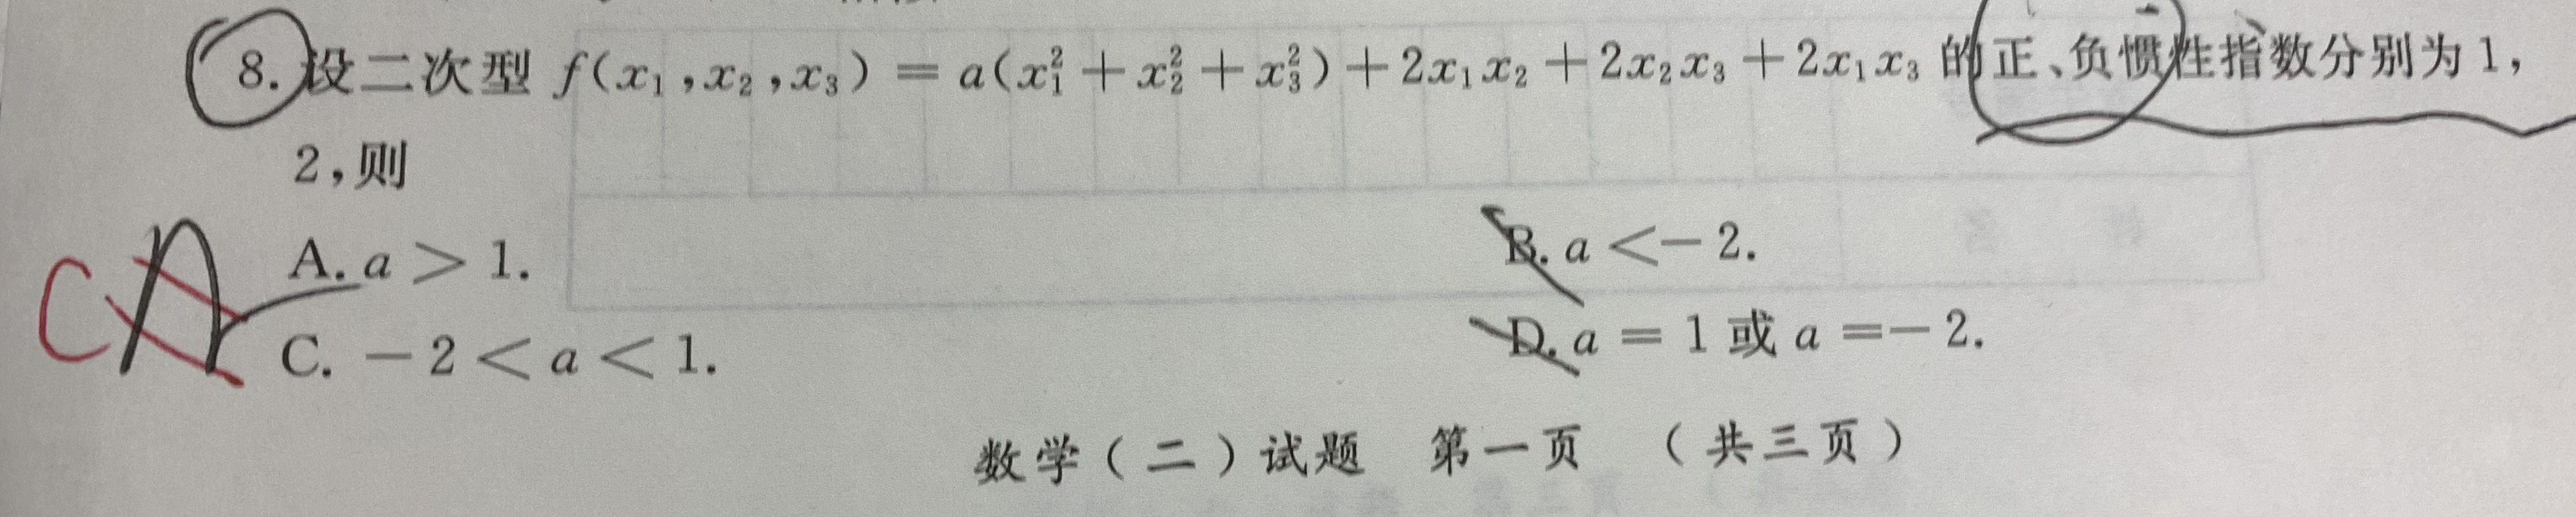 8. 设二次型 f(x₁,x₂,x₃) = a(x₁² + x₂² + x₃²) + 2x₁x₂ + 2x₂x₃ + 2x₁x₃ 的正、负惯性指数分别为 1,
2,则
A. a > 1. B. a <- 2.
C A
C. - 2 < a < 1. D. a = 1 或 a =- 2.
数学(二)试题 第一页 (共三页)